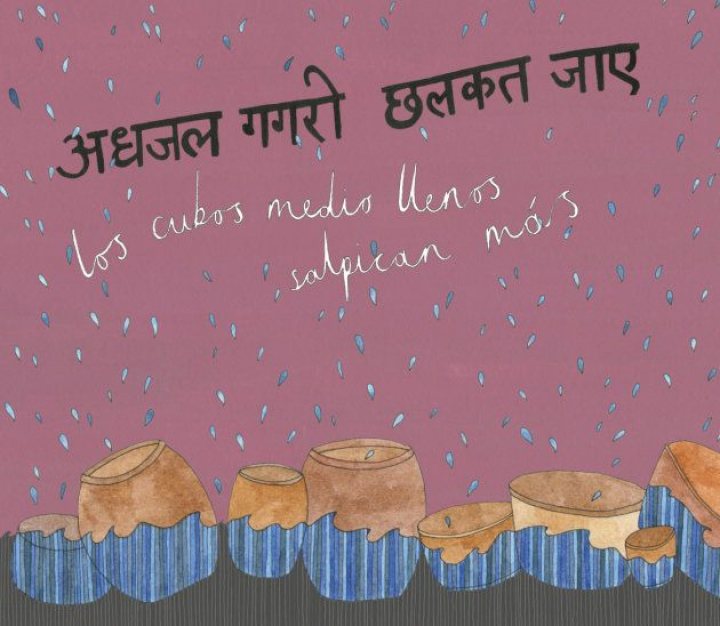 अधजल गगरी छलकत जाए
los cubos medio llenos
salpican más